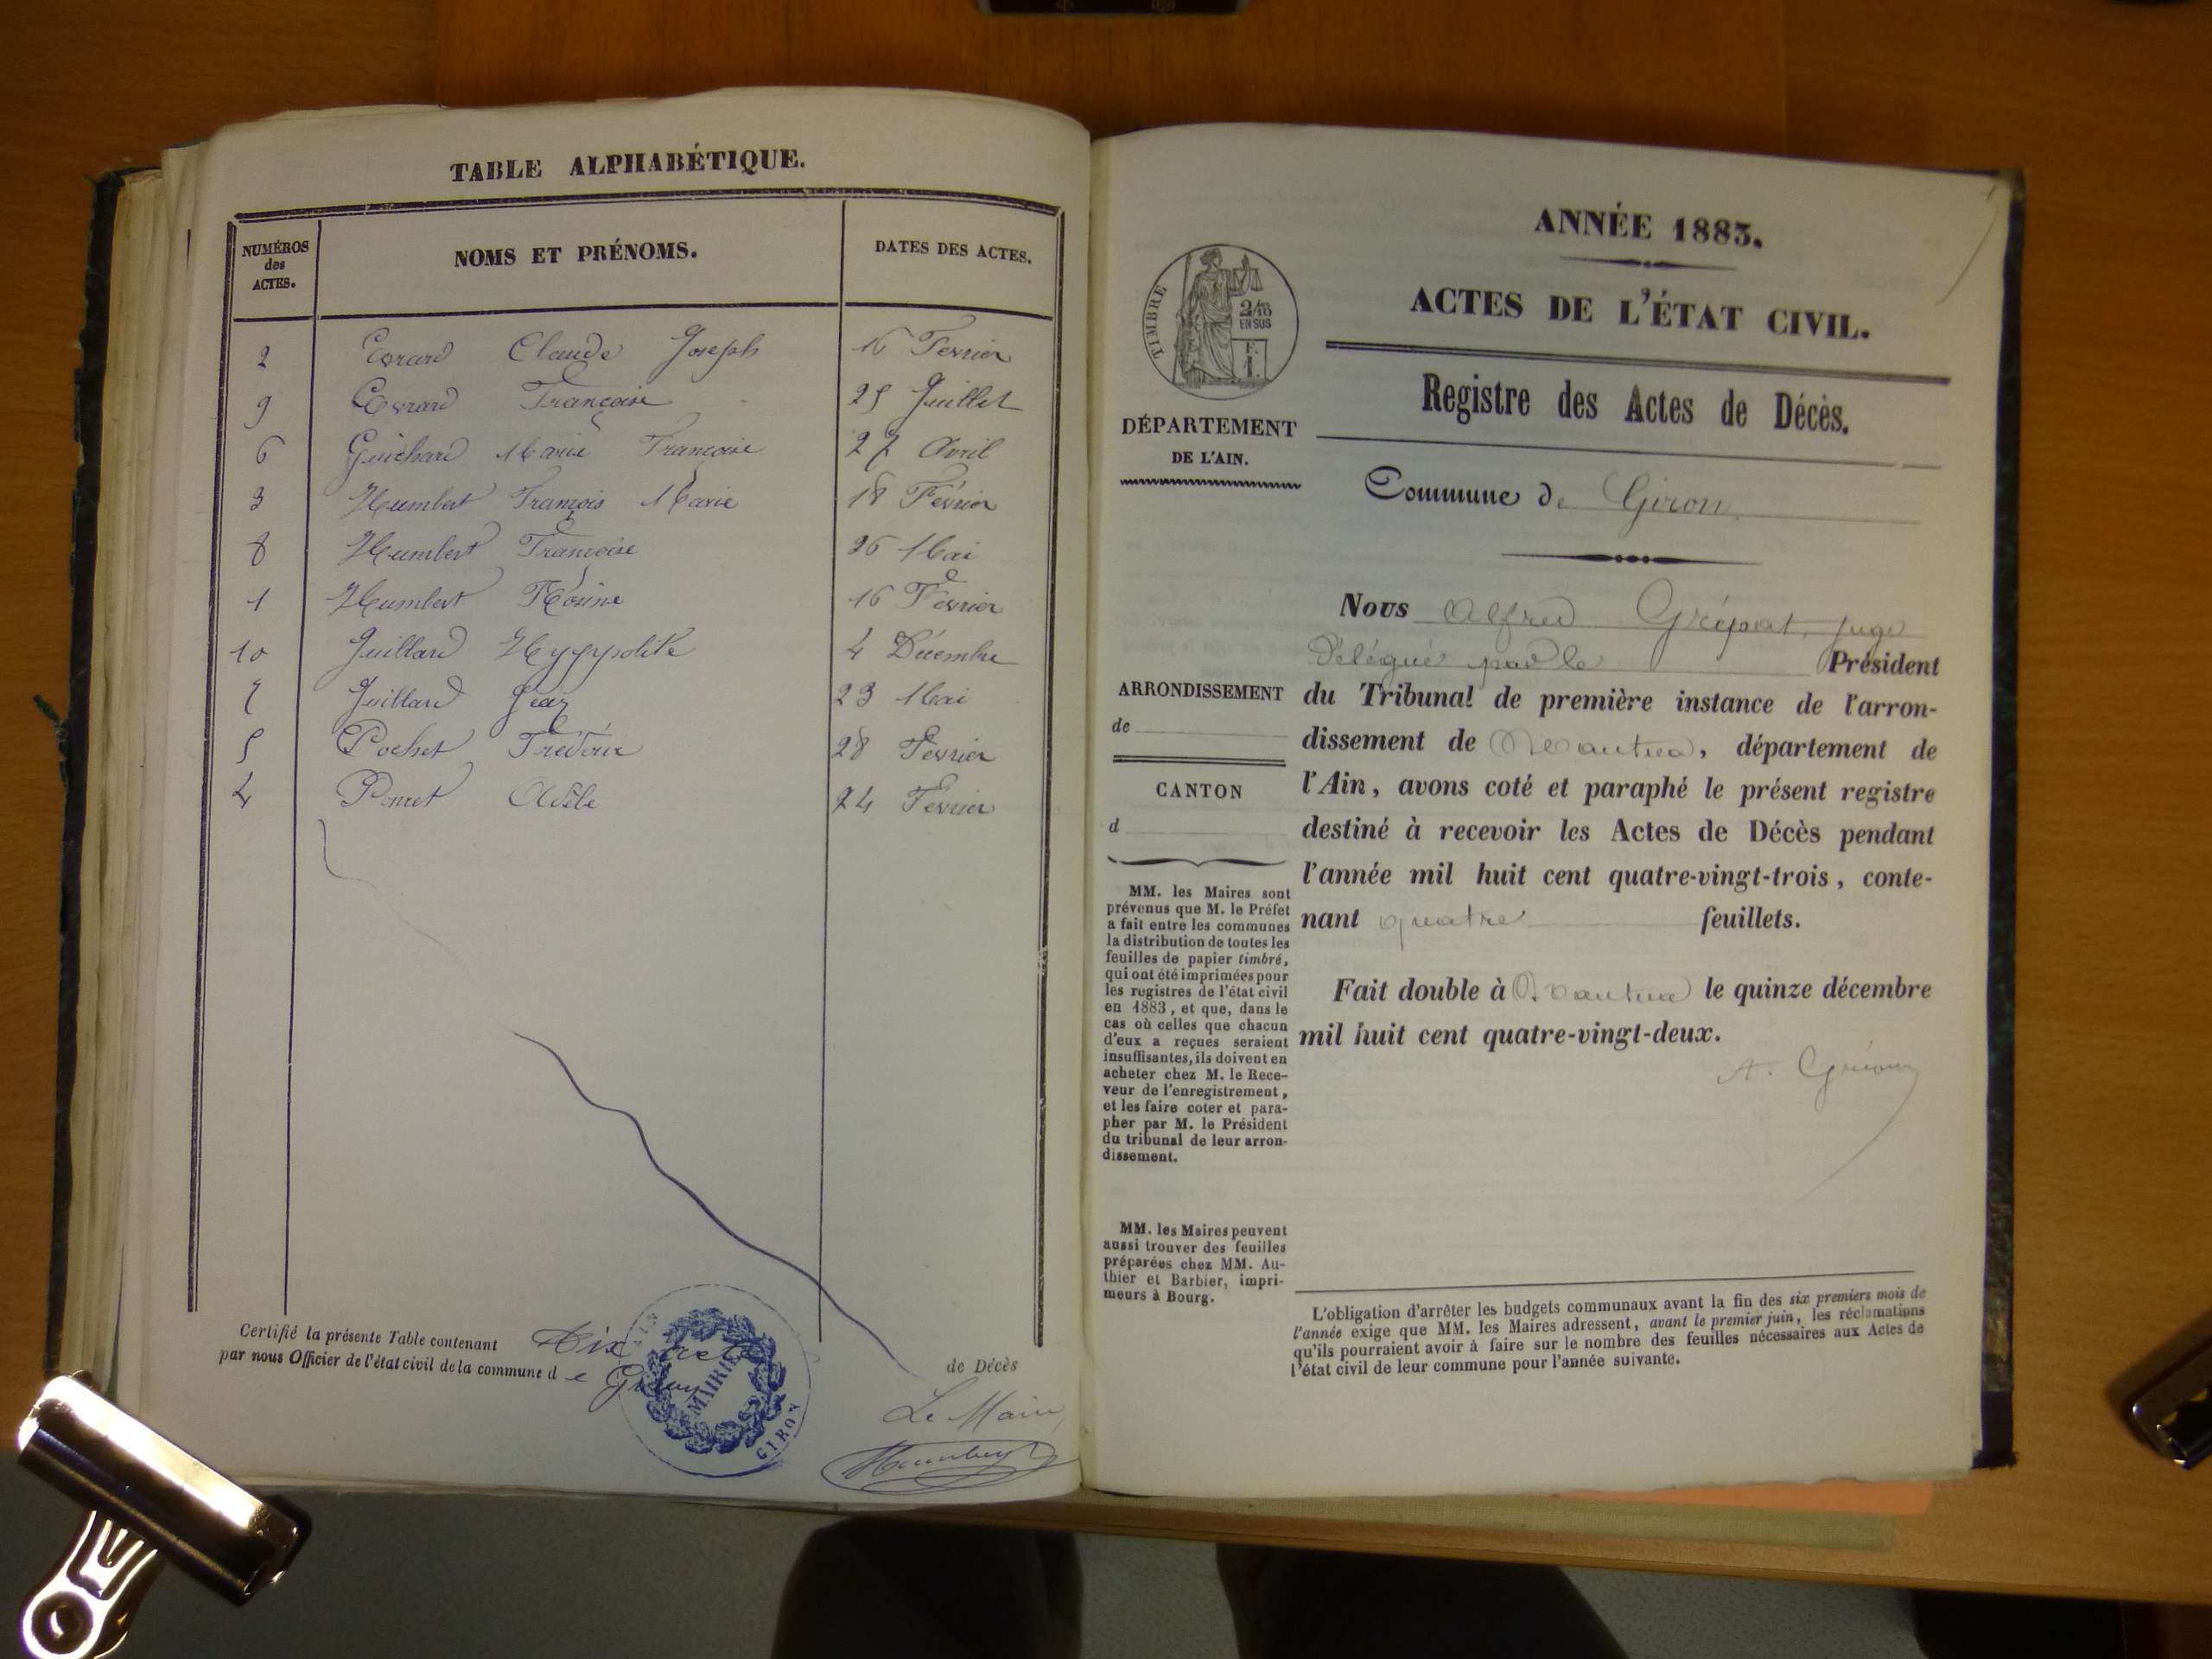 TABLE ALPHABÉTIQUE.
NUMÉROS des ACTES.
NOMS ET PRÉNOMS.
DATES DES ACTES.
2 Evrard Claude Joseph 16 Fevrier
9 Evrard Françoise 25 Juillet
6 Guichard Marie Françoise 27 Avril
3 Humbert François Marie 18 Févrior
8 Humbert Françoise 26 Mai
1 Humbert Rosine 16 Fevrier
10 Juillard Hyppolite 4 Décembre
7 Juillard 23 Mai
5 Pochet 28 Fevrier
4 Poncet Adèle 24 Fevrier
Certifié la présente Table contenant Dix actes de Décès
par nous Officier de l'état civil de la commune de Giron
AIN
MAIRIE
GIRON
Le Maire
Humbert
ANNÉE 1883.
ACTES DE L'ÉTAT CIVIL.
TIMBRE
2/10
EN SUS
F.
1.
DÉPARTEMENT
DE L'AIN.
Registre des Actes de Décès.
Commune de Giron
Nous Alfred juge
Délégué par le Président
du Tribunal de première instance de l'arron-
dissement de Nantua, département de
l'Ain, avons coté et paraphé le présent registre
destiné à recevoir les Actes de Décès pendant
l'année mil huit cent quatre-vingt-trois, conte-
nant quatre feuillets.
Fait double à Nantua le quinze décembre
mil huit cent quatre-vingt-deux.
ARRONDISSEMENT
de
CANTON
d
MM. les Maires sont
prévenus que M. le Préfet
a fait entre les communes
la distribution de toutes les
feuilles de papier timbré,
qui ont été imprimées pour
les registres de l'état civil
en 1883, et que, dans le
cas où celles que chacun
d'eux a reçues seraient
insuffisantes, ils doivent en
acheter chez M. le Rece-
veur de l'enregistrement,
et les faire coter et para-
pher par M. le Président
du tribunal de leur arron-
dissement.
MM. les Maires peuvent
aussi trouver des feuilles
préparées chez MM. Au-
thier et Barbier, impri-
meurs à Bourg.
L'obligation d'arrêter les budgets communaux avant la fin des six premiers mois de
l'année exige que MM. les Maires adressent, avant le premier juin, les réclamations
qu'ils pourraient avoir à faire sur le nombre des feuilles nécessaires aux Actes de
l'état civil de leur commune pour l'année suivante.